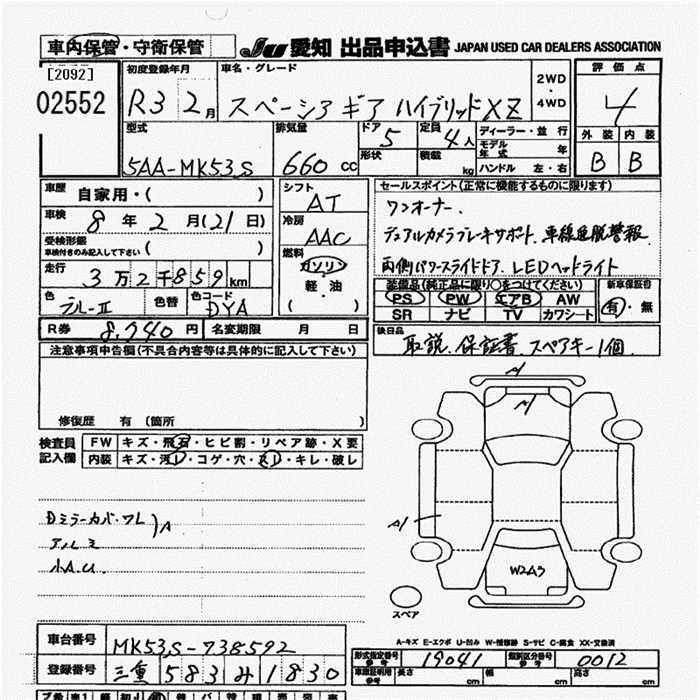 車内保管・守衛保管 JU 愛知 出品申込書 JAPAN USED CAR DEALERS ASSOCIATION
[2092] 初度登録年月 車名・グレード 2WD ・ 4WD 評価点
02552 R3 2月 スペーシア ギア ハイブリッドXZ 4
型式 排気量 ドア 5 定員 4人 ディーラー・並行 外装 内装
5AA-MK53S 660 CC 形状 積載 kg モデル年式 年 B B
ハンドル 左・右
車歴 自家用・( ) シフト AT セールスポイント(正常に機能するものに限ります)
車検 8年2月(21日) 冷房 AAC ワンオーナー、
受検形態 車検付きのみ記入して下さい ( ) デュアルカメラブレーキサポート、車線逸脱警報、
走行 3万2千859km 燃料 ガソリン・軽油 ( ) 両側パワースライドドア、LEDヘッドライト
色 ブルーⅡ 色替 色コード DYA 装備品(純正品に限り○をつけてください) 新車保証書
PS PW エアB AW 有・無
SR ナビ TV カワシート
R券 8,740円 名変期限 月 日 後日品
取説、保証書、スペアキー1個
注意事項申告欄(不具合内容等は具体的に記入して下さい)
修復歴 有 (箇所 )
検査員記入欄 FW キズ・飛石・ヒビ割・リペア跡・X要
内装 キズ・汚レ・コゲ・穴・スレ・キレ・破レ
A1
A1
Dミラーカバーワレ
アルミ )A
小A.U.
A1
W2A3
スペア
A-キズ E-エクボ U-凹み W-補修跡 S-サビ C-腐食 XX-交換済
車台番号 MK53S-738592 形式指定番号 参考 19041 類別区分番号 参考 0012
登録番号 三重 583 み 1830 車庫証明用 参考 長さ cm 幅 cm 高さ cm